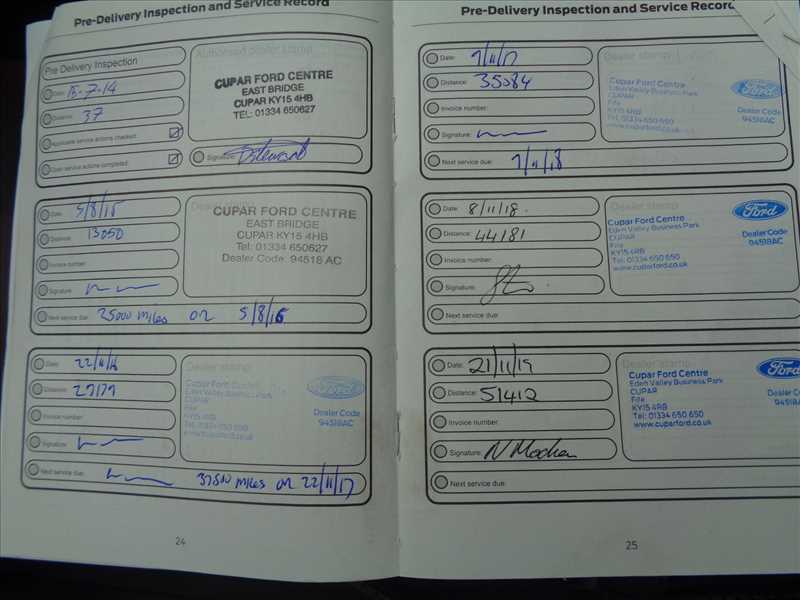 Pre-Delivery Inspection and Service Record
Pre Delivery Inspection
Date: 15-7-14
Distance: 37
Applicable service actions checked:
Open service actions completed:
Authorised dealer stamp
CUPAR FORD CENTRE
EAST BRIDGE
CUPAR KY15 4HB
TEL: 01334 650627
Signature:
Date: 5/8/15
Distance: 13050
Invoice number:
Signature:
Next service due: 25000 miles or 5/8/16
Dealer stamp
CUPAR FORD CENTRE
EAST BRIDGE
CUPAR KY15 4HB
Tel: 01334 650627
Dealer Code: 94518 AC
Date:
Distance:
Invoice number:
Signature:
Next service due: 37500 miles or 22/11/17
Dealer stamp
Cupar Ford Centre
Eden Valley Business Park
CUPAR
Fife
KY15 4RB
Tel: 01334 650 650
www.cuparford.co.uk
Ford
Dealer Code
94518AC
24
Pre-Delivery Inspection and Service Record
Date: 7/11/17
Distance: 35084
Invoice number:
Signature:
Next service due: 7/11/18
Dealer stamp
Cupar Ford Centre
Eden Valley Business Park
CUPAR
Fife
KY15 4RB
Tel: 01334 650 650
www.cuparford.co.uk
Ford
Dealer Code
94518AC
Date: 8/11/18.
Distance: 44181
Invoice number:
Signature:
Next service due:
Dealer stamp
Cupar Ford Centre
Eden Valley Business Park
CUPAR
Fife
KY15 4RB
Tel: 01334 650 650
www.cuparford.co.uk
Ford
Dealer Code
94518AC
Date: 21/11/19
Distance: 51412
Invoice number:
Signature:
Next service due:
Dealer stamp
Cupar Ford Centre
Eden Valley Business Park
CUPAR
Fife
KY15 4RB
Tel: 01334 650 650
www.cuparford.co.uk
Ford
Dealer
94518A
25